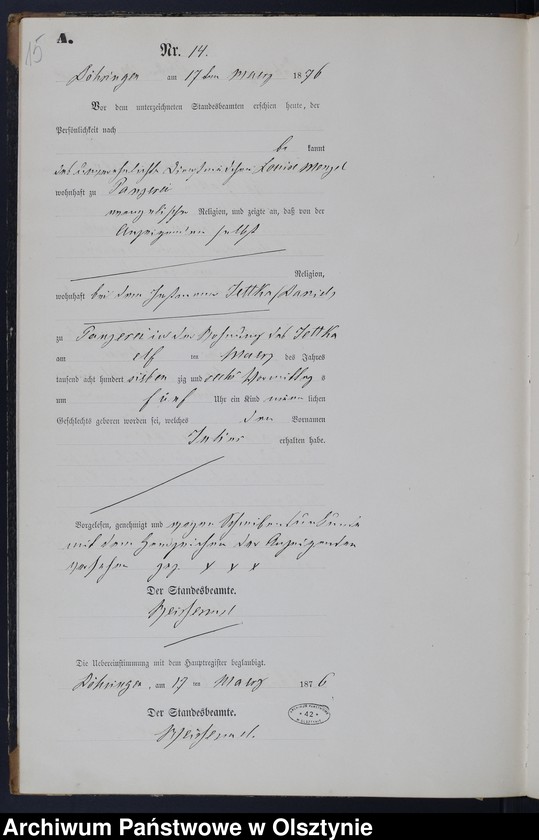 15
A.
Nr. 14.
Döhringen am 17ten Maerz 1876
Vor dem unterzeichneten Standesbeamten erschien heute, der
Persönlichkeit nach
be kannt
das unverehelichte Dienstmädchen Louise Menzel
wohnhaft zu Panzerei
evangelischer Religion, und zeigte an, daß von der
Anzeigenden selbst
Religion,
wohnhaft bei dem Instmann Jettka, Daniel,
zu Panzerei in der Wohnung des Jettka
am elf ten Maerz des Jahres
tausend acht hundert sieben zig und sechs Vormittag s
um fünf Uhr ein Kind männ lichen
Geschlechts geboren worden sei, welches den Vornamen
Julius erhalten habe.
Vorgelesen, genehmigt und wegen Schreibensunkunde
mit dem Handzeichen der Anzeigenden
versehen gez. x x x
Der Standesbeamte.
Die Uebereinstimmung mit dem Hauptregister beglaubigt.
Döhringen, am 17 ten Maerz 1876
Der Standesbeamte.
42
Archiwum Państwowe w Olsztynie